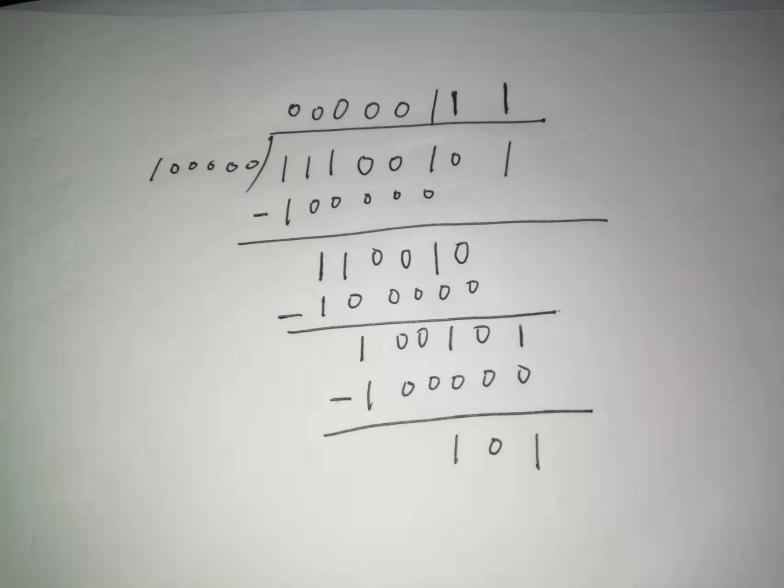 00000111
100000)11100101
-100000
110010
-100000
100101
-100000
101